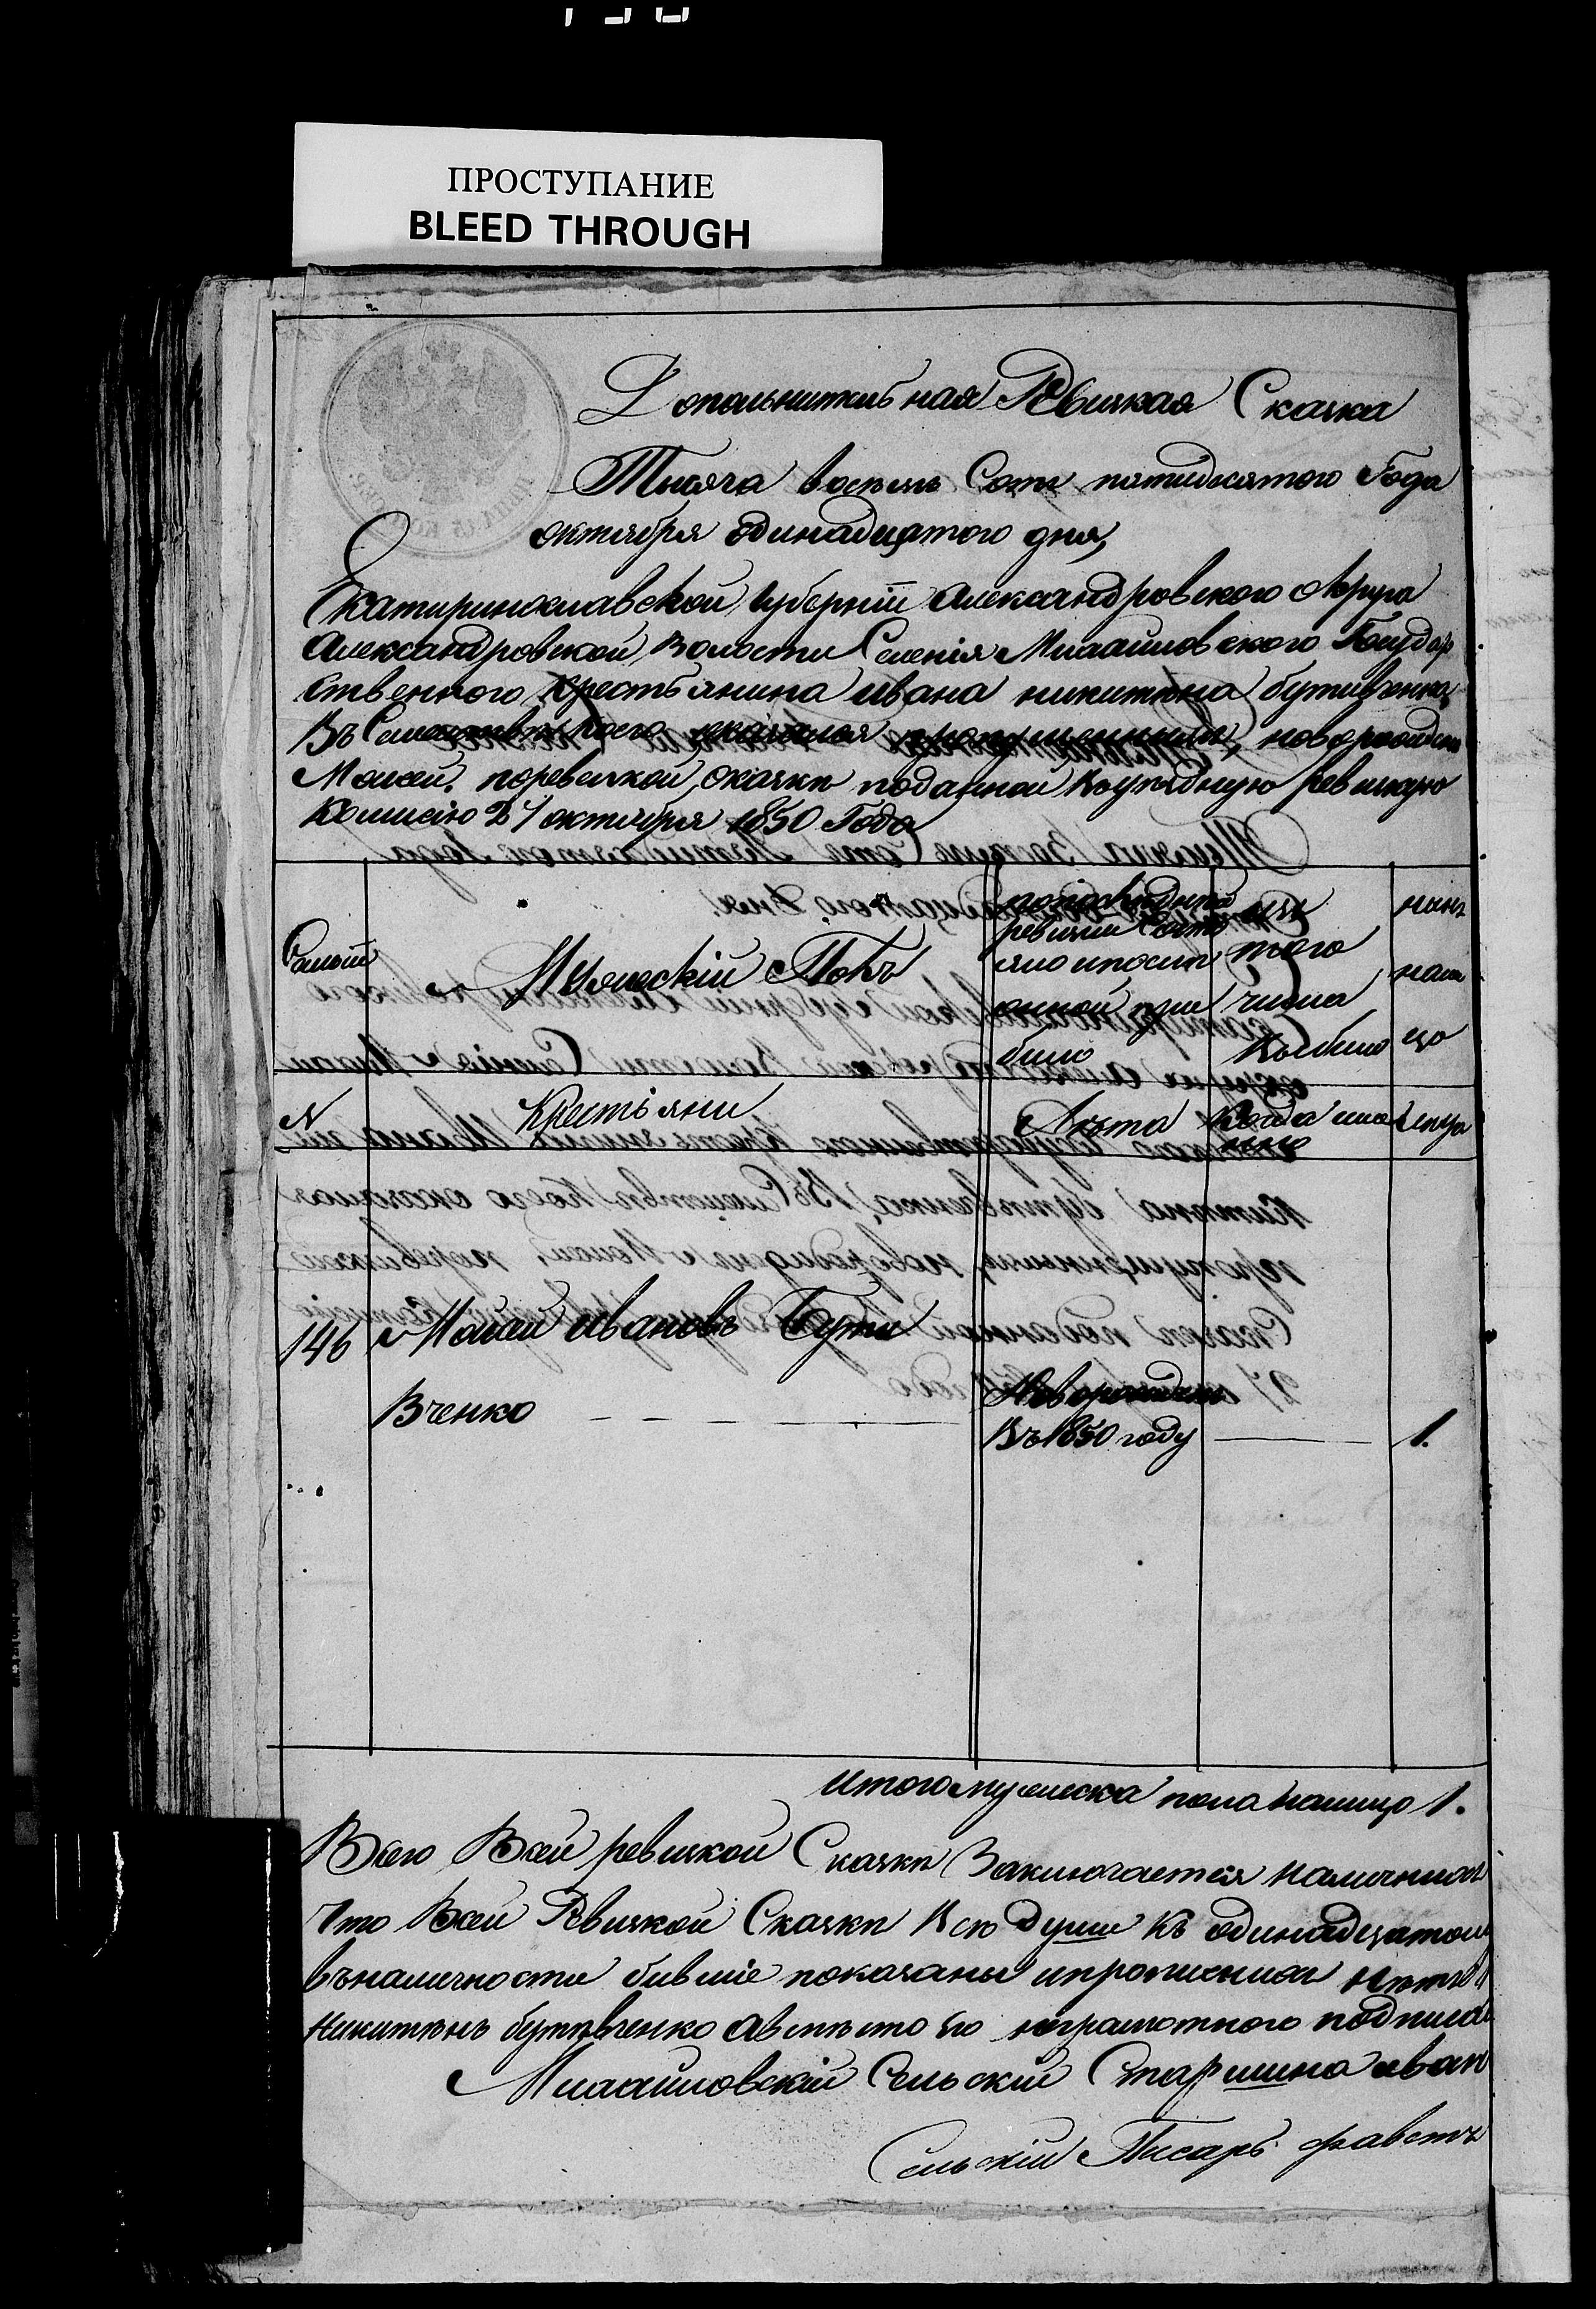 ПРОСТУПАНИЕ
BLEED THROUGH
Дополнительная Ревизкая Сказка
Тысяча восемь Сотъ пятидесятого Года
октября одинадцятого дня,
Екатиринославской губерніи Александровского округа
Александровской волости Селенія Михайловского Государ
ственного крестьянина ивана никитина бутивченка,
Въ Семействѣ коего оказался пропущеннымъ, новорожденъ
Моисей, поревизкой сказки поданной въуѣздную ревизкую
Комисію 21 октября 1850 Года
Семьи
Мужескій Полъ
ревизии
оной при
было
изъ
того
числа
выбило
нынѣ
нали
цо
№
Крестьяни
Лѣта
Когда имен
но
Лѣта
146
Моисей ивановъ Бути
вченко
Новорожденъ
Въ 1850 году
1.
итого мужеска пола налицо 1.
Всего Всей ревизкой Сказки Заключается наличныхъ
Что Всей Ревизкой Сказки Все души къ одинадцатому
въналичности бившіе показаны ипрописныхъ нѣтъ
Никитинъ бутивченко авместо его неграмотного подписалъ
Михайловскій Сельскій Старшина иван
Сельскій Писарь